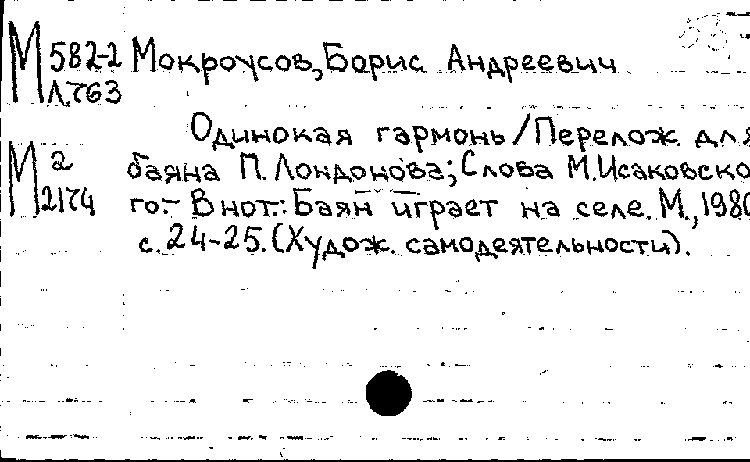 М 582-2 Мокроусов, Борис Андреевич
Л763
Одинокая гармонь / Перелож. для
М а баяна П. Лондонова; Слова М. Исаковско-
2174 го.- В нот.: Баян играет на селе. М., 1980
с. 24-25. (Худож. самодеятельности).